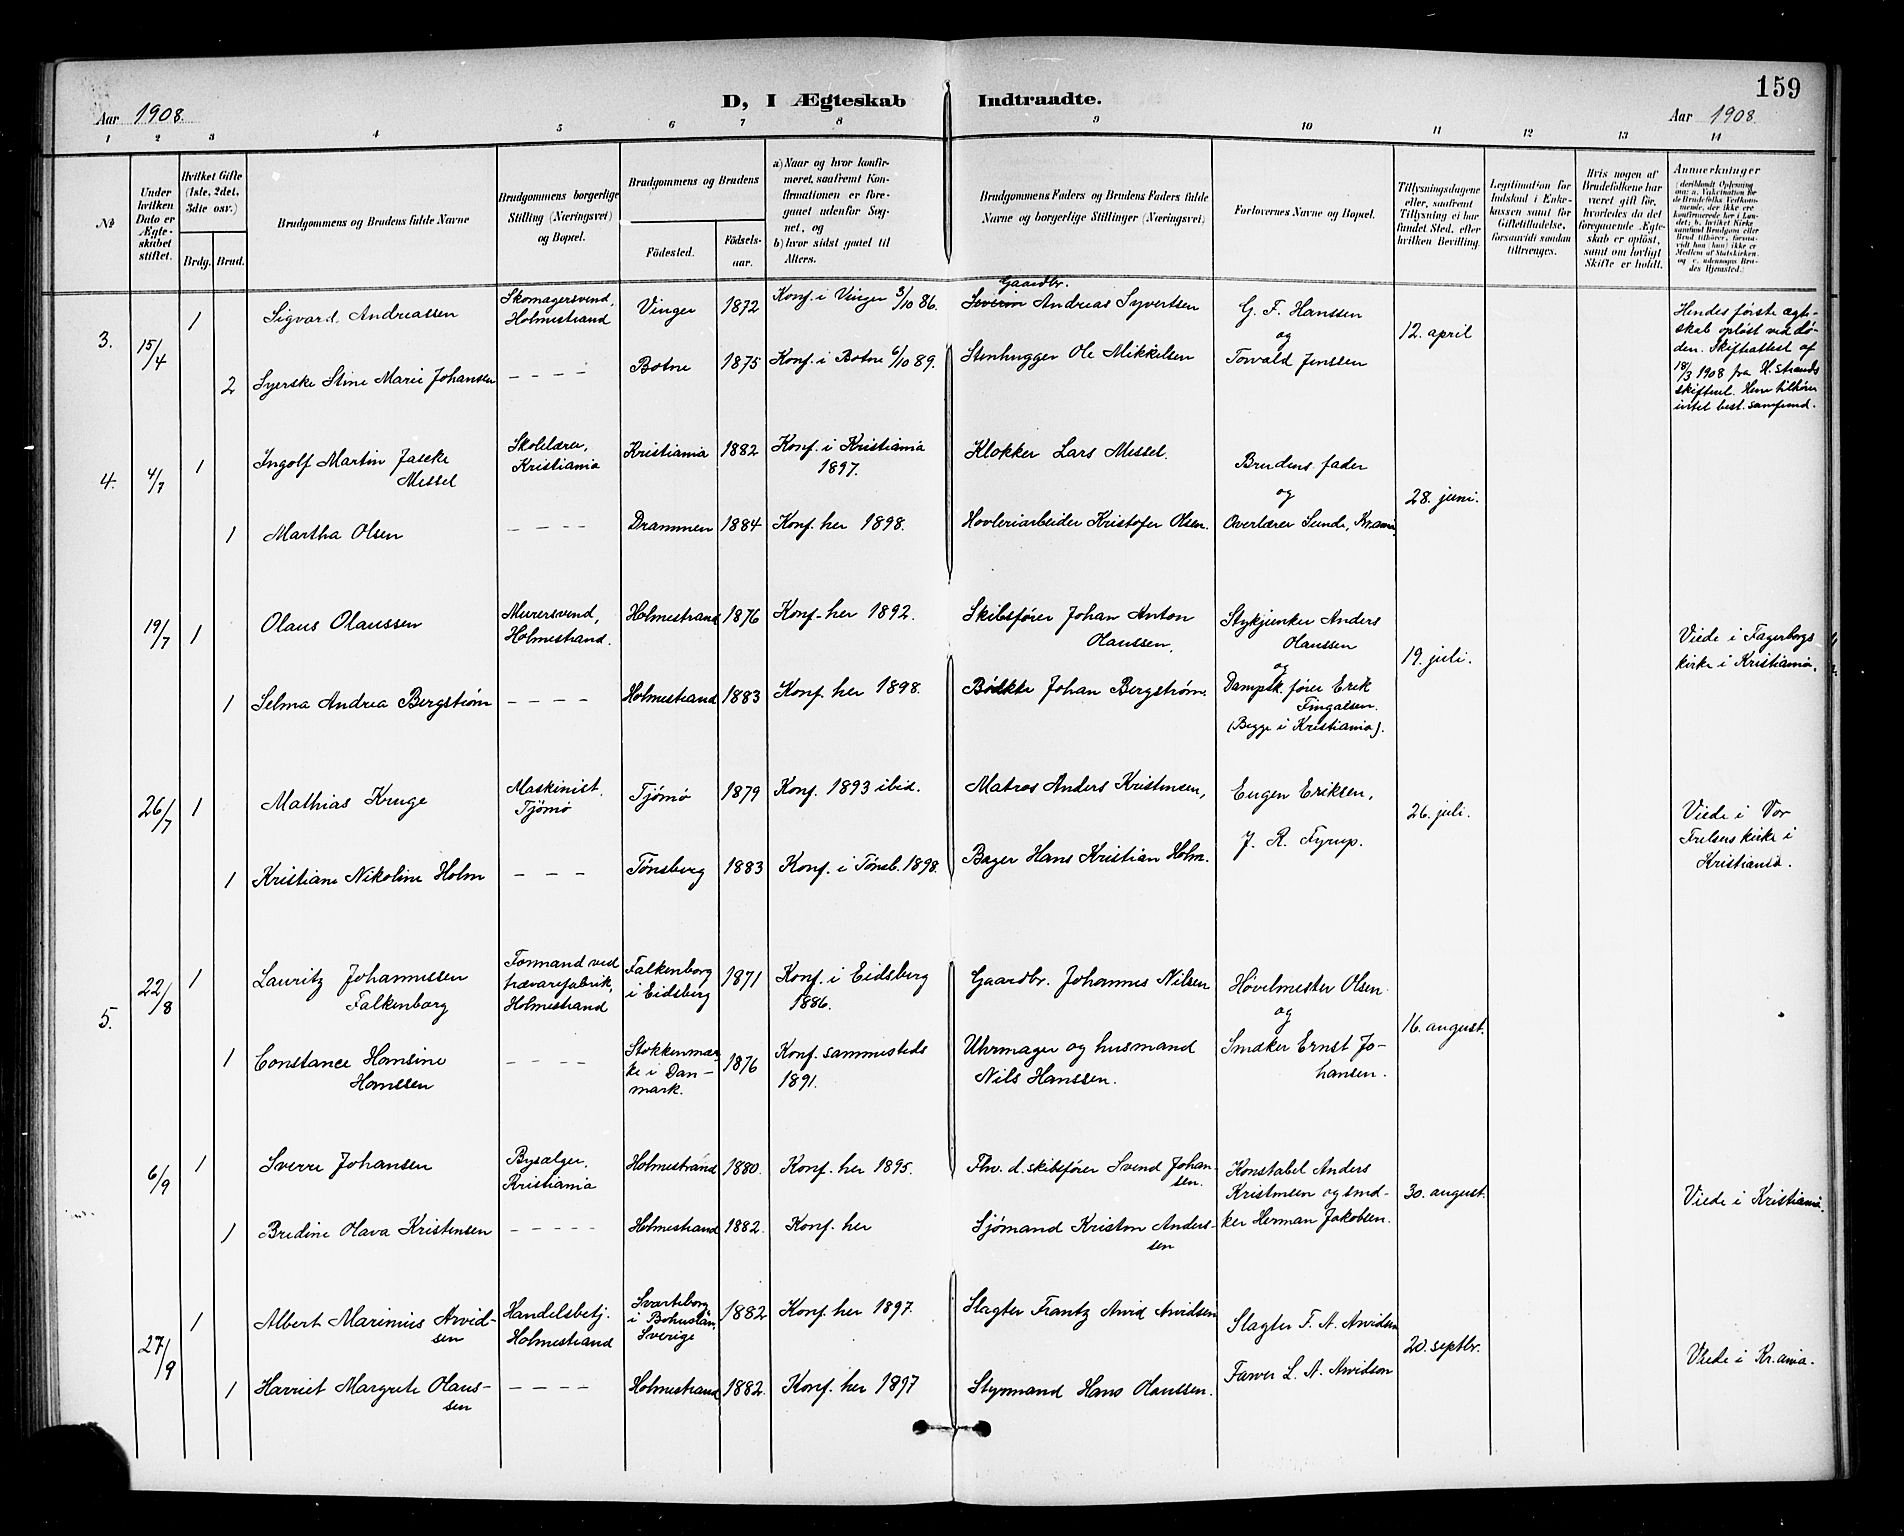 159
D, I Ægteskab Indtraadte.
Aar 1908. Aar 1908.
1 2 3 4 5 6 7 8 9 10 11 12 13 14
№
Under hvilken Dato er Ægteskabet stiftet.
Hvilket Gifte (1ste, 2det, 3die osv.)
Brdg. Brud.
Brudgommens og Brudens fulde Navne
Brudgommens borgerlige Stilling (Næringsvei) og Bopæl.
Brudgommens og Brudens
Födested.
Födsels-aar.
a) Naar og hvor konfirmeret, saafremt Konfirmationen er foregaaet udenfor Sognet, og
b) hvor sidst gaaet til Alters.
Brudgommens Faders og Brudens Faders fulde Navne og borgerlige Stillinger (Næringsvei)
Forlovernes Navne og Bopæl.
Tillysningsdagene eller, saafremt Tillysning ei har fundet Sted, efter hvilken Bevilling.
Legitimation for Indskud i Enkekassen samt for Giftetilladelse, forsaavidt saadan tiltrænges.
Hvis nogen af Brudefolkene har været gift før, hvorledes da det foregaaende Ægteskab er oplöst, samt om lovligt Skifte er holdt.
Anmærkninger
3. 15/4 1 Sigvard Andreassen
Skomagersvend,
Holmestrand
Vinger 1872 Konf. i Vinger 3/10 86.
Gaardbr.
Andreas Syvertsen
G. F. Hanssen
og
Torvald Jenssen
12. april
2 Syerske Stine Marie Johansen
- - - -
Botne 1875 Konf. i Botne 6/10 89.
Stenhugger Ole Mikkelsen
Hendes første ægte-
skab opløst ved dø-
den. Skifteattest af
18/3 1908 fra H.strands
skifteret. Hun tilhører
intet best. samfund.
4. 4/7 1 Ingolf Martin
Messel
Skolelærer,
Kristiania
Kristiania 1882 Konf. i Kristiania
1897.
Klokker Lars Messel.
Brudens fader
og
Overlærer Sunde, Kr.ania.
28. juni.
1 Martha Olsen
- - - -
Drammen 1884 Konf. her 1898.
Høvleriarbeider Kristofer Olsen.
19/7 1 Olaus Olaussen
Murersvend,
Holmestrand.
Holmestrand 1876 Konf. her 1892.
Skibsfører Johan Anton
Olaussen,
Stykjunker Anders
Olaussen
og
Dampsk.fører Erik
Fingalsen.
(Begge i Kristiania).
19. juli.
Viede i Fagerborgs
kirke i Kristiania.
1 Selma Andrea Bergstrøm
- - - -
Holmestrand 1883 Konf. her 1898.
Johan Bergstrøm.
26/7 1 Mathias Kruge
Maskinist,
Tjømø
Tjømø 1879 Konf. 1893 ibid.
Matros Anders Kristensen,
Eugen Eriksen,
J. R. Fyrup.
26. juli.
Viede i Vor
Frelsers kirke i
Kristiania.
1 Kristiane Nikoline Holm
- - -
Tønsberg 1883 Konf. i Tønsb. 1898.
Bager Hans Kristian Holm.
5. 22/8 1 Lauritz Johannessen
Falkenborg
Formand ved
trævarefabrik,
Holmestrand
Falkenborg
i Eidsberg
1871 Konf. i Eidsberg
1886.
Gaardbr. Johannes Nilsen
Høvelmester Olsen
og
Snedker Ernst Jo-
hansen.
16. august.
1 Constance Hansine
Hanssen
- - - -
Stokkemar-
ke i Dan-
mark.
1876 Konf. sammesteds
1891.
Uhrmager og husmand
Nils Hanssen.
6/9 1 Sverre Johansen
Bysælger,
Kristiania
Holmestrand 1880. Konf. her 1895.
Fhv. d.skibsfører Svend Johan-
sen.
Konstabel Anders
Kristensen og sned-
ker Herman Jakobsen.
30. august.
Viede i Kristiania.
1 Bredine Olava Kristensen
- - - - -
Holmestrand 1882. Konf. her
Sjømand Kristen Anders-
sen
27/9 1 Albert Marinius Arvid-
sen
Handelsbetj.
Holmestrand
Svarteborg
i Bohuslän,
Sverige
1882 Konf. her 1897.
Slagter Frantz Arvid Arvidsen
Slagter F. A. Arvidsen
Farver L. A. Arvidson
20. septbr.
Viede i Kr.ania.
1 Harriet Margrete Olaus-
sen
- - - -
Holmestrand 1882. Konf. her 1897
Styrmand Hans Olaussen.